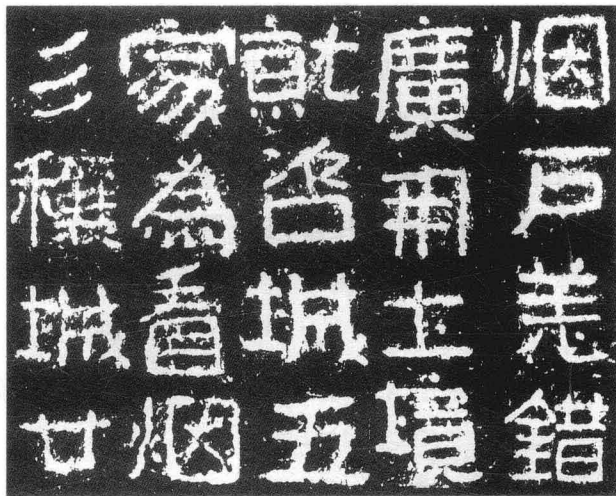 烟戶差錯
廣開土境
就咨城五
家為看烟
彡穰城廿